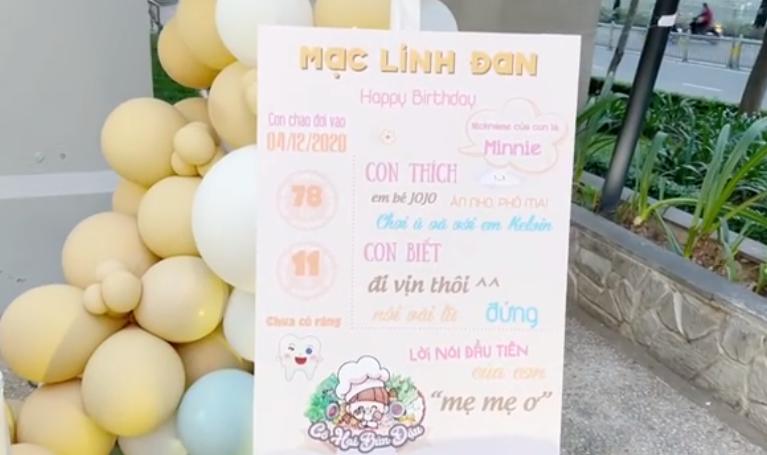 MẠC LINH ĐAN
Happy Birthday
Con chào đời vào
04/12/2020
Nickname của con là
Minnie
CON THÍCH
em bé JOJO
ĂN NHO, PHÔ MAI
Chơi ú oà với em Kelvin
78
11
CON BIẾT
đi vịn thôi ^^
nói vài từ
đứng
Chưa có răng
LỜI NÓI ĐẦU TIÊN
của con
"mẹ mẹ ơ"
Cô Hai Bún Đậu